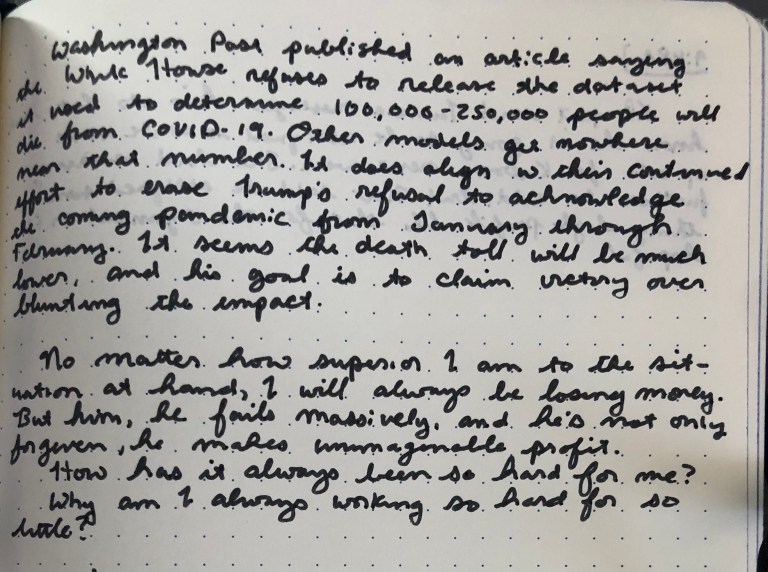 Washington Post published an article saying
the White House refuses to release the dataset
it used to determine 100,000-250,000 people will
die from COVID-19. Other models get nowhere
near that number. It does align w their continued
effort to erase Trump's refusal to acknowledge
the coming pandemic from January through
February. It seems the death toll will be much
lower, and his goal is to claim victory over
blunting the impact.
No matter how superior I am to the sit-
uation at hand, I will always be losing money.
But him, he fails massively, and he's not only
forgiven, he makes unimaginable profit.
How has it always been so hard for me?
Why am I always working so hard for so
little?